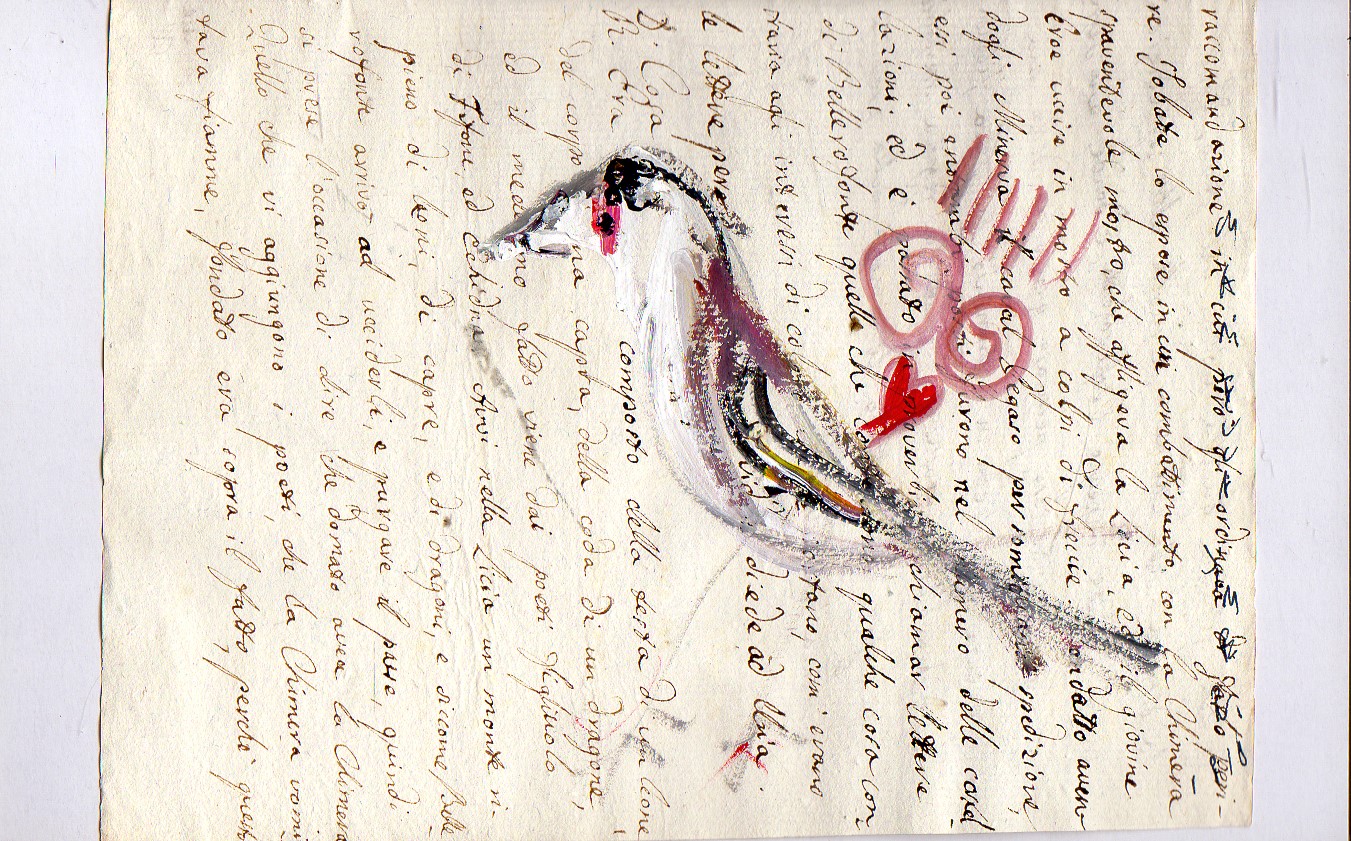 raccomandazione in cui però gli ordinava di farlo peri-
re. Jobate lo espose in un combattimento con la Chimera
spaventevole mostro, che affligeva la Licia, il giovine
Eroe uccise in mostro a colpi di freccie aven-
dogli Minerva il caval Pegaso per spedizione,
essi poi furono nel numero delle costel-
lazioni, ed è passato in proverbi chiamar lettere
di Bellerofonte quelle che qualche cosa con-
traria agli interessi di com'erano
le lettere diede ad Uria.
D. Cosa
R. Era composto della testa di un lione
del corpo capra, della coda di un dragone,
ed il fatto viene dai poeti figliuolo
di Tifone, ed Echidna. Avvi nella Licia un monte ri-
pieno di lupi, di capre, e di dragoni, e siccome Belle-
rofonte arrivò ad ucciderli, e purgare il paese, quindi
si prese l'occasione di dire che domato avea la Chimera
Quello che vi aggiungono i poeti, che la Chimera vomi-
tava fiamme, fondato era sopra il fatto, perchè questo